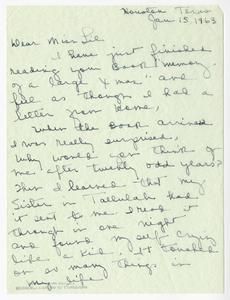 Houston Texas
Jan 15. 1963
Dear Miss Lee.
I have just finished
reading your Book "memory
of a Large X mas" and
felt as though I had a
letter from home,
When the Book arrived
I was really surprised,
Who world can think of
me after twenty odd years?
Then I learned that my
Sister in Tallulah had
it sent to me I read it
through in one night
and found my self crying
like a kid. It touched
on so many things in
my life